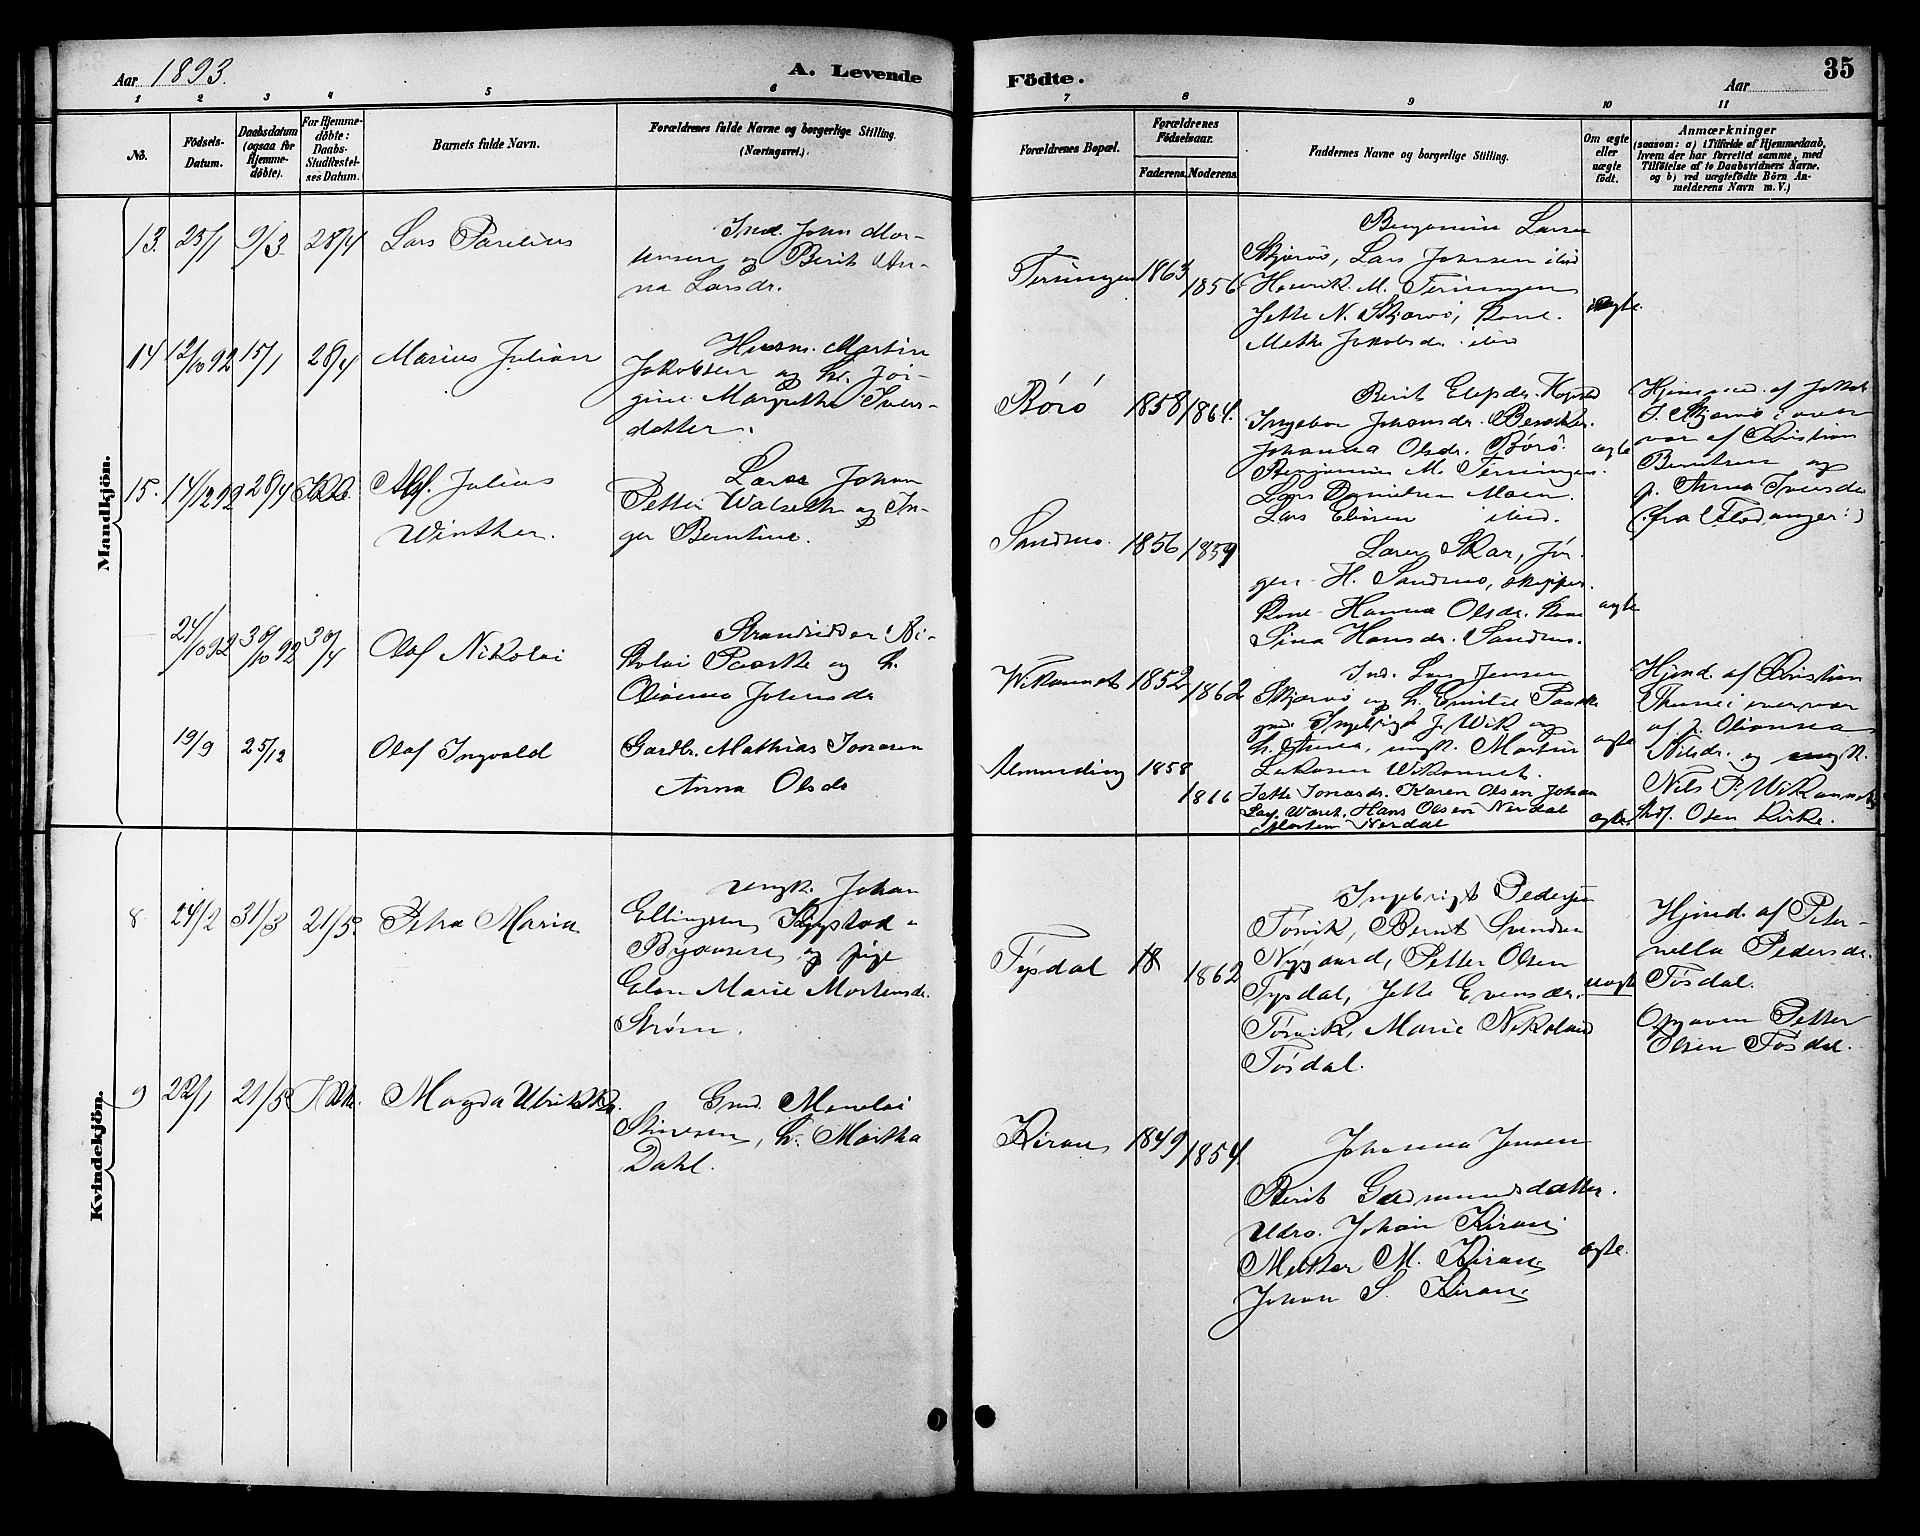 Aar 1893.
A. Levende
Födte.
Aar
35
1 2 3 4 5 6 7 8 9 10 11
No.
Födsels-
Datum.
Daabsdatum
(ogsaa for
Hjemme-
döbte).
For Hjemme-
döbte:
Daabs-
Stadfæstel-
ses Datum.
Barnets fulde Navn.
Forældrenes fulde Navne og borgerlige Stilling.
(Næringsvei.)
Forældrenes Bopæl.
Forældrenes
Födselsaar.
Faderens. Moderens.
Faddernes Navne og borgerlige Stilling.
Om ægte
eller
uægte
födt.
Anmærkninger
(saasom: a) i Tilfælde af Hjemmedaab,
hvem der har forrettet samme, med
Tilföielse af to Daabsvidners Navne,
og b) ved uægtefödte Börn An-
melderens Navn m. V.)
Mandkjön.
13. 25/1 9/3 28/4
Lars Parelius
Ind. John Mor-
tensen og Berit An-
na Larsdr.
Terningen 1863 1856
Benjamin Larsen
Skjærvö, Lars Johnsen ibid
Henrik M. Terningen
Jette N. Skjærvö, Kone
Mette Jakobsdr. ibid
ægte.
14 12/10 92 15/1 28/4
Marius Julian
Husm. Martin
Jakobsen og h. Jör-
gine Margrethe Ivers-
datter.
Börö 1858 1864.
Berit Elefsdr.
Ingebor Johansdr.
Johanna Olsdr. Börö.
Benjamin M. Terningen.
Lars Danielsen Moen.
Lars Elisen ibid.
ægte
Hjemmed. af Jakob
J. Skjærvö i over
vær af Kristian
Berntsen og
p. Anna Iversdr
(: fra :)
15. 14/12 92 28/4
Alf. Julius
Winther.
Lærer Johan
Petter Walseth og In-
ger Berntine.
Sandmo. 1856 1859
Lærer Skar, Jör-
gen H. Sandmo, skipper.
Kone Hanna Olsdr. Kone
Sina Hansdr. Sandmo.
ægte
24/10 92 30/10 92 30/4
Olaf Nikolai
Strandsidder Ni-
kolai Paaske og h.
Olianna Johnsdr
Wikannet 1852 1862
Ind. Lars Jensen
Skjærvö og h. Emilie Paaske
gmd. Ingebrigt J. Wik og
h. Anna, ungk. Martin
Wikannet.
ægte
Hjmd. af Kristian
i overvær
af p. Olianna
Nilsdr. og ungk.
Nils P. Wikannet
19/9 25/12
Olaf Ingvald
Gardbr. Mathias Jonasen
Anna Olsdr
Almending 1858 1866
Jette Jonasdr. Karen Olsen Johan
Waret. Hans Olsen Nerdal
Morten Nerdal
ægte.
Osen Kirke.
Kvindekjön.
8 24/2 31/3 21/5.
Petra Maria
ungk. Johan
Ellingsen
og pige
Marie Mortensdr.
Ström.
Tysdal 18 1862
Ingebrigt Pedersen
Tösvik, Bernt Svendsen
Nygaard, Petter Olsen
Tysdal, Jette Evensdr.
Tösvik, Marie Nikolaid
Tösdal.
uægte
Hjmd. af Peter-
nella Pedersdr.
Tösdal.
Opgaven Petter
Olsen Tösdal.
9 22/1 21/5
Magda Ulrikka.
Gmd. Menelai
h. Martha
Dahl.
Kiran 1849 1854.
Johanna Jensen
Berit Gudmundsdatter.
Udro. Johan Kiran
M. Kiran
Johan S. Kiran
ægte.